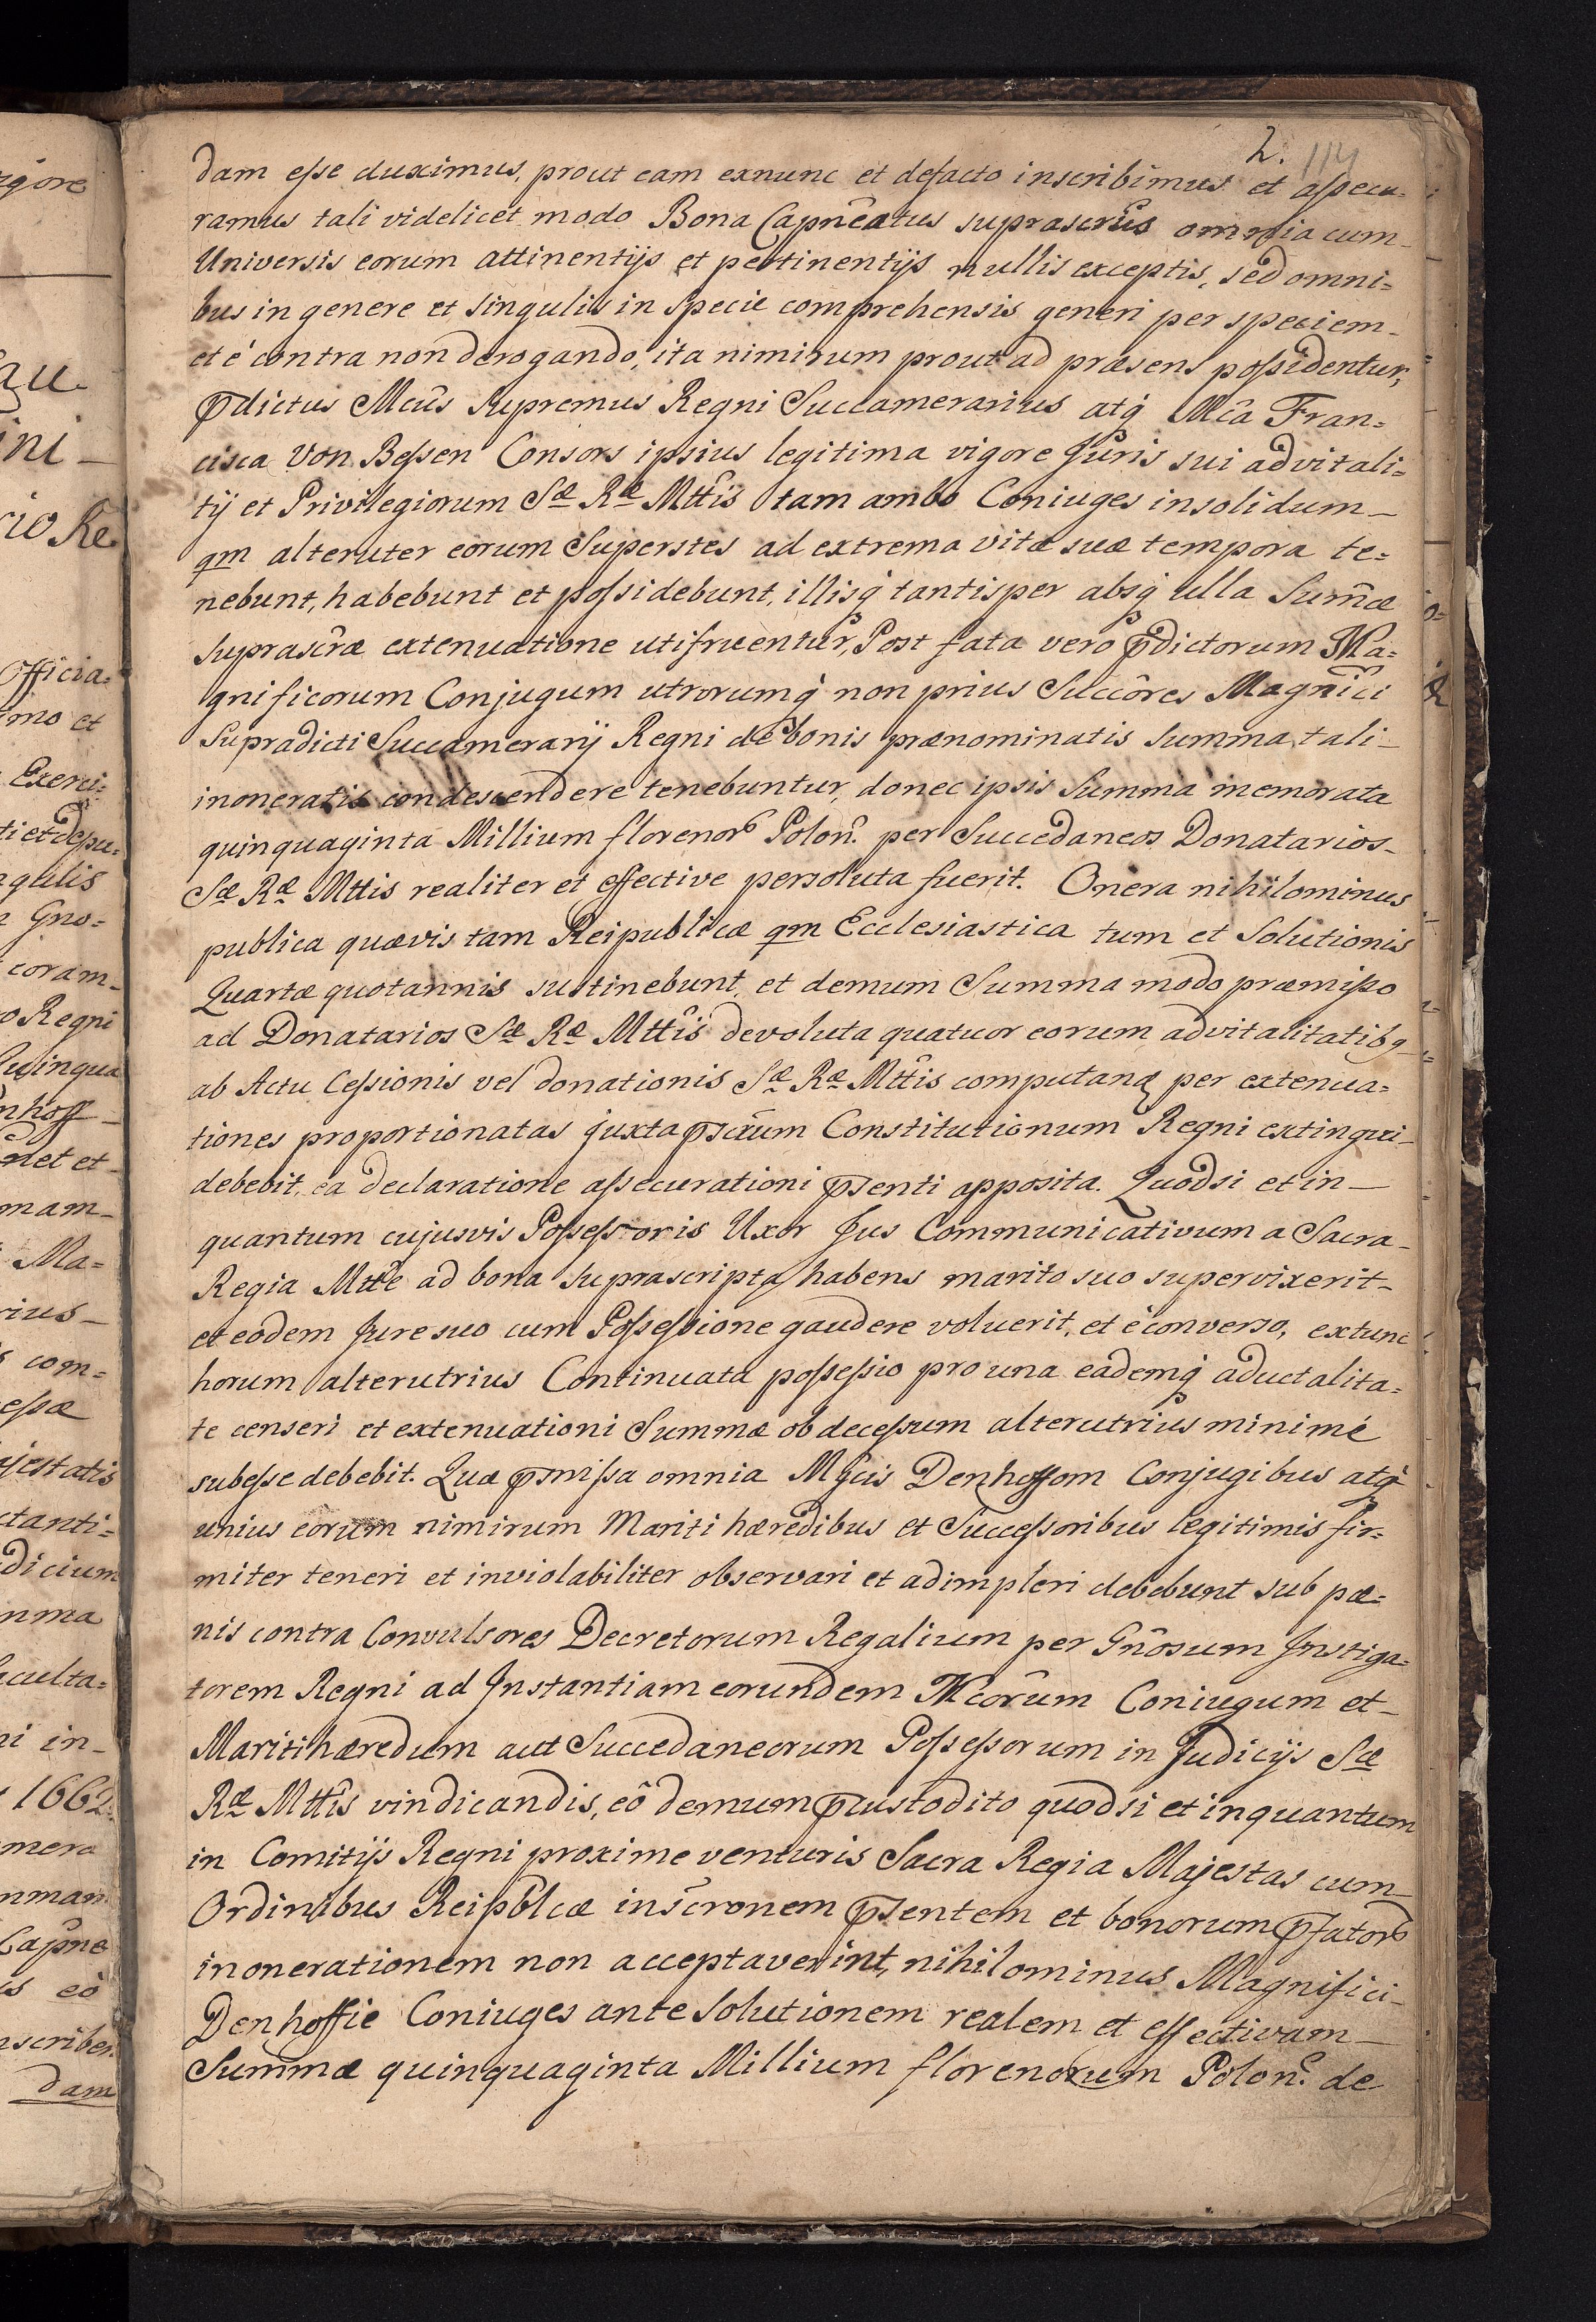 2. 114
dam eſse duximus, prout eam exnunc et defacto inscribimus et aſsecu=
ramus tali videlicet modo Bona Capnêatus suprascrîta omnia cum_
Universis eorum attinentijs et pertinentijs nullis exceptis, sed omni=
bus in genere et singulis in specie comprehensis generi per speciem_
et è contra non derogando, ita nimirum prout ad præsens poſsidentur,
p̄dictus Mcûs Supremus Regni Succamerarius atq́ Mcâ Fran=
cisca Von Beſsen Consors ipsius legitima vigore Juris sui advitali=
tij et Privilegiorum Sæ Ræ Mttîs tam ambo Coniuges insolidum_
qm alteruter eorum Superstes ad extrema vitæ suæ tempora te=
nebunt, habebunt et poſsidebunt, illisq́ tantisper absq́ ulla Sum̃æ
suprascr̂æ extenuatione utifruentur, Post fata vero p̄dictorum Ma=
gnificorum Conjugum utrorumq́ non prius Succôres Magnîci
Supradicti Succamerarij Regni de bonis prænominatis Summa tali_
inoneratis condescendere tenebuntur, donec ipsis Summa memorata
quinquaginta Millium florenorb Polon̂. per Succedaneos Donatarios_
Sæ Ræ Mttis realiter et effective persoluta fuerit. Onera nihilominus
publica quævis tam Reipublicæ qm Ecclesiastica tum et Solutionis
Quartæ quotannis sustinebunt, et demum Summa modo præmiſso
ad Donatarios Sæ Ræ Mttîs devoluta quatuor eorum advitalitatibq_
ab Actu Ceſsionis vel donationis Sæ Ræ Mttîs computandæ per extenua=
tiones proportionatas juxta p̄scr̂um Constitutionum Regni extingui_
debebit, ea declaratione aſsecurationi p̄senti apposita. Quodsi et in_
quantum cujusvis Poſseſsoris Uxor Jus Communicativum a Sacra_
Regia Mtte ad bona suprascripta habens marito suo supervixerit_
et eodem Jure suo cum Poſseſsione gaudere voluerit, et è converso, extunc
horum alterutrius Continuata poſseſsio pro una eademq́ aductalita=
te censeri et extenuationi Summæ ob deceſsum alterutrius minimé
subeſse debebit. Quæ p̄miſsa omnia Mfcis Denhoffom Conjugibus atq́
unius eorum nimirum Mariti hæredibus et Succeſsoribus legitimis fir=
miter teneri et inviolabiliter observari et adimpleri debebunt sub pæ=
nis contra Convulsores Decretorum Regalium per Gñosum Instiga=
torem Regni ad Instantiam eorundem Mcôrum Coniugum et_
Mariti hæredum aut Succedaneorum Poſseſsorum in Judicijs Sæ
Ræ Mttîs vindicandis, eô demum p̄custodito quodsi et inquantum
in Comitijs Regni proxime venturis Sacra Regia Majestas cum_
Ordinibus Reipb̂lcæ inscr̂onem p̄sentem et bonorum p̄fatorb
inonerationem non acceptaverint, nihilominus Magnifici_
Denhoffie Coniuges ante Solutionem realem et effectivam_
Summæ quinquaginta Millium florenorum Polon̂. de